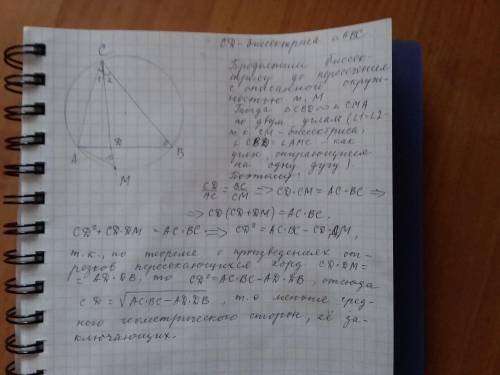 CD - биссектриса △ABC.
Продолжим биссек-
трису до пересечения
с описанной окруж-
ностью т. M
Тогда △CBD ∾ △CMA
по двум углам (∠1=∠2
т.к. CM - биссектриса,
∠CBD = ∠AMC - как
углы, опирающиеся
на одну дугу).
Поэтому
CD/AC = BC/CM => CD·CM = AC·BC =>
=> CD(CD+DM) = AC·BC.
CD²+CD·DM = AC·BC => CD² = AC·BC - CD·DM,
т.к., по теореме о произведениях от-
резков пересекающихся хорд CD·DM =
= AD·DB, то CD² = AC·BC - AD·DB, отсюда
CD = √AC·BC - AD·DB, т.о. меньше сред-
него геометрического сторон, её за-
ключающих.
C
1 2
A
D
B
M